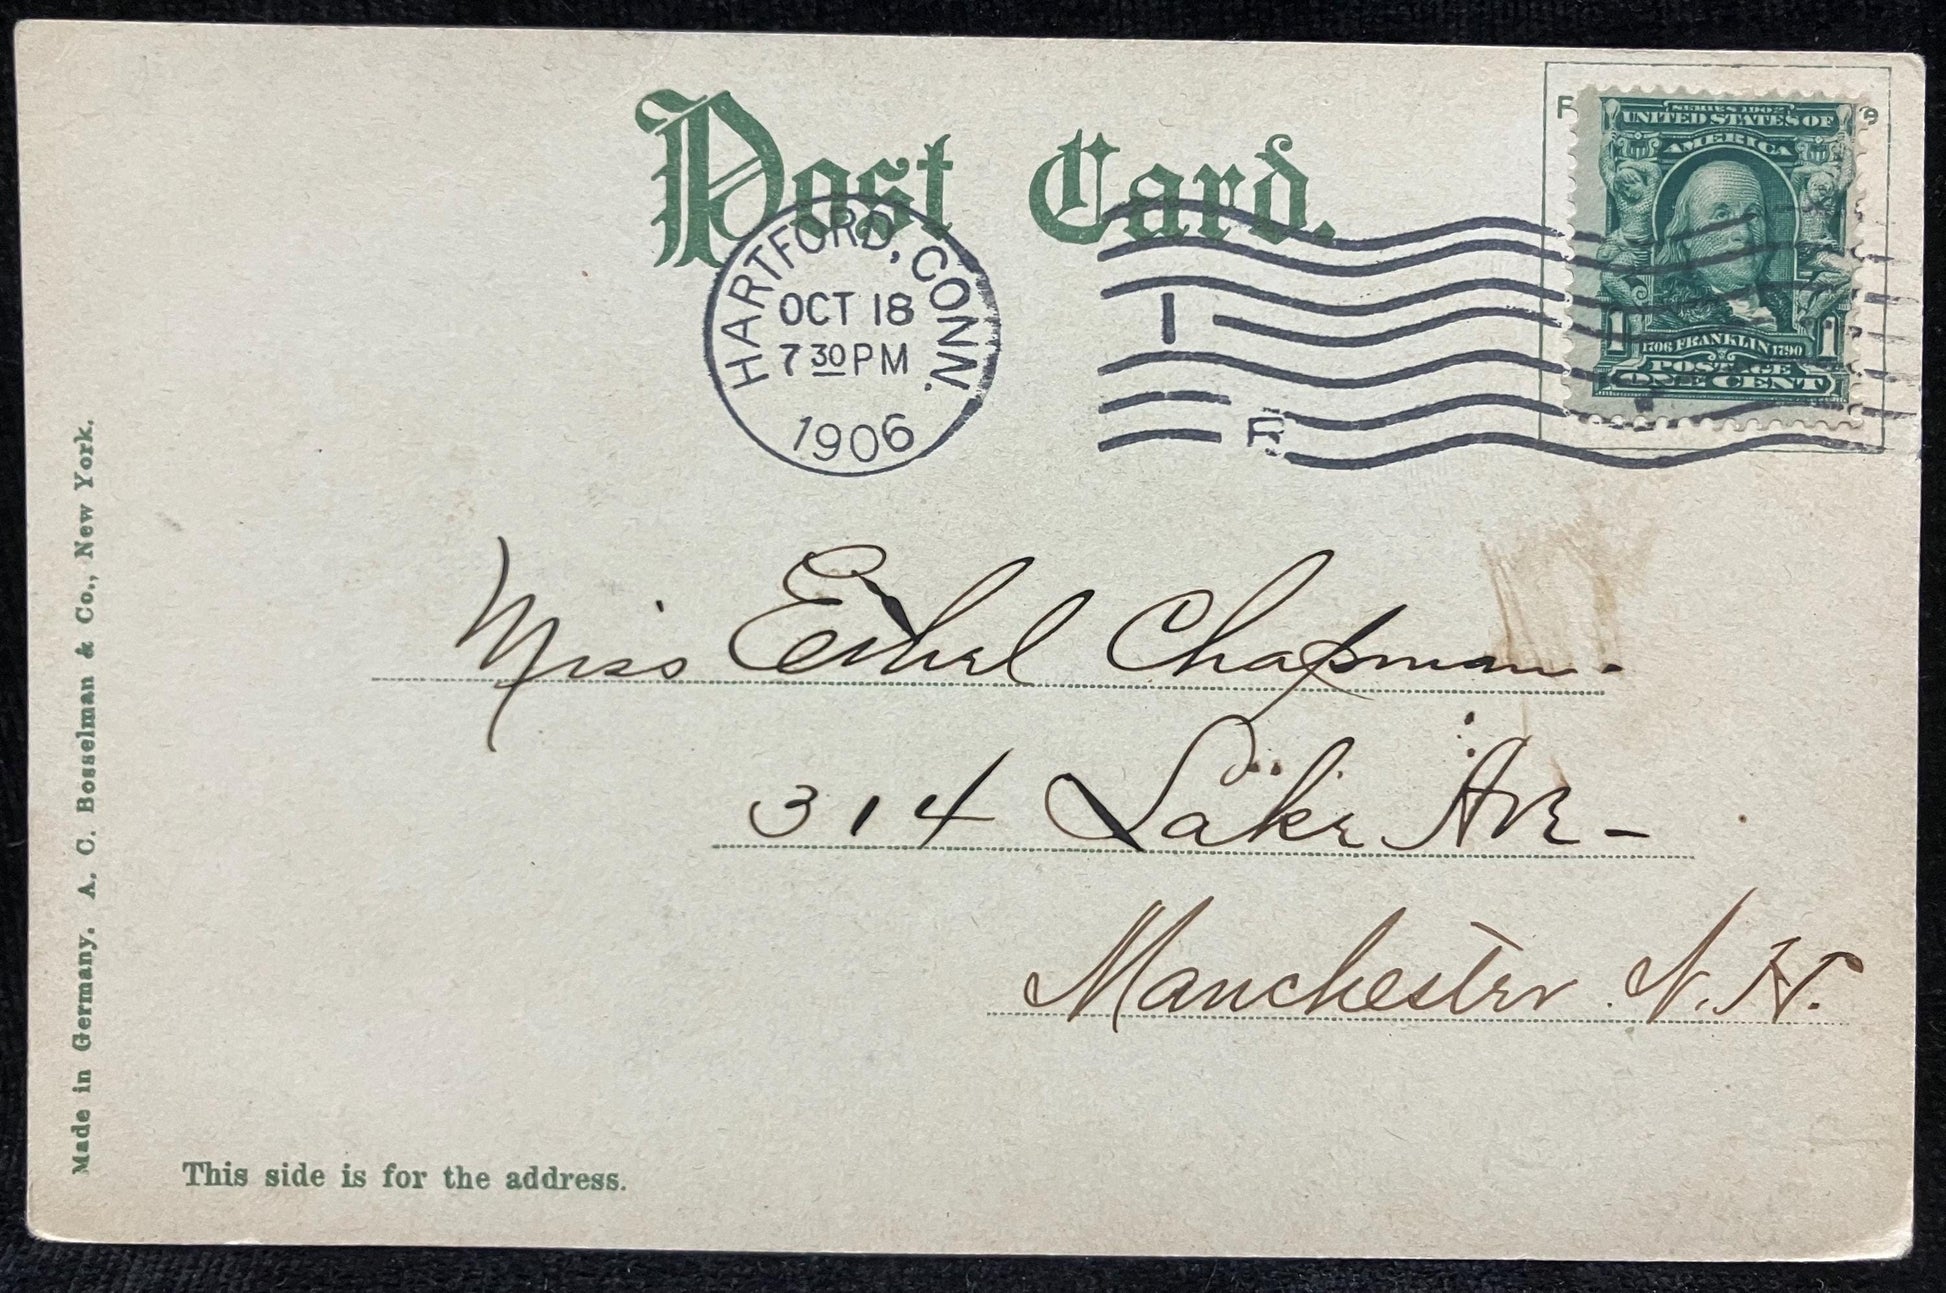 Post Card.
HARTFORD, CONN.
OCT 18
7 30 PM
1906
1
R
SERIES 1902
UNITED STATES OF
AMERICA
1706 FRANKLIN 1790
1 1
POSTAGE
ONE CENT
Miss Ethel Chapman.
314 Lake Ave-
Manchester. N.H.
This side is for the address.
Made in Germany. A. C. Bosselman & Co., New York.